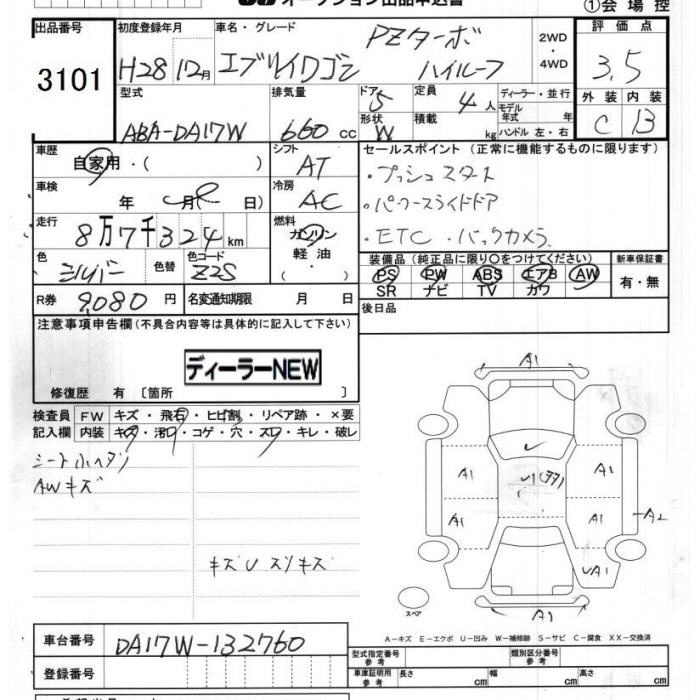 オークション出品申込書
①会場控
出品番号
3101
初度登録年月
H28 12月
車名・グレード
エブリイワゴン
PZターボ
ハイルーフ
2WD
・
4WD
評価点
3.5
外装 内装
C B
型式
ABA-DA17W
排気量
660 cc
ドア
5
形状
W
定員
4 人
積載
kg
ディーラー・並行
モデル年式 年
ハンドル 左・右
車歴
自家用・( )
シフト
AT
車検
年 月 日
冷房
AC
走行
8万7千324km
燃料
ガソリン
軽油
・( )
色
シルバー
色替
色コード
Z2S
R券 9,080 円
名変通知期限 月 日
セールスポイント (正常に機能するものに限ります)
・プッシュスタート
・パワースライドドア
・ETC ・バックカメラ
装備品 (純正品に限り○をつけてください)
PS PW ABS エアB AW
SR ナビ TV カワ
新車保証書
有・無
後日品
注意事項申告欄 (不具合内容等は具体的に記入して下さい)
ディーラーNEW
修復歴 有 〔箇所 〕
検査員記入欄
FW キズ・飛石・ヒビ割・リペア跡・×要
内装 キズ・汚レ・コゲ・穴・スレ・キレ・破レ
シート小ヘタリ
AWキズ
キズU スリキズ
A1
A1
A1
A1
A1
A2
A1
A1
スペア
A-キズ E-エクボ U-凹み W-補修跡 S-サビ C-腐食 XX-交換済
車台番号 DA17W-132760
登録番号
型式指定番号 参考
類別区分番号 参考
車庫証明用 参考
長さ cm
幅 cm
高さ cm